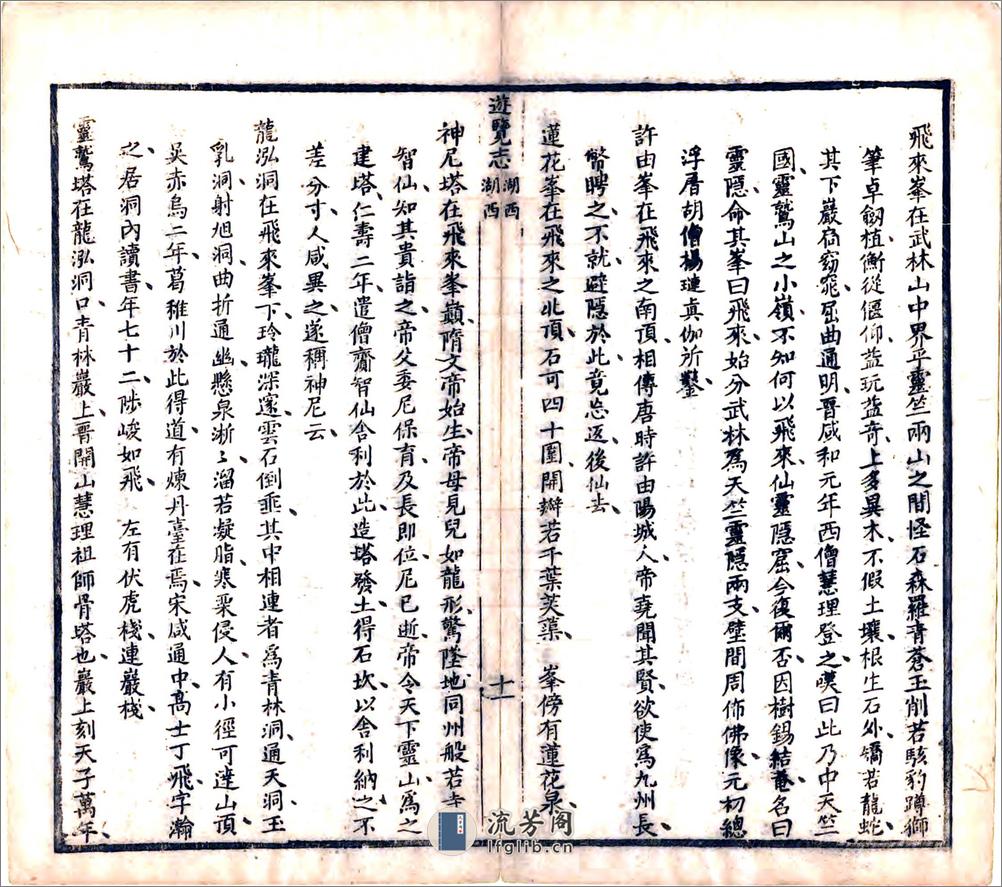 飛來峯在武林山中界乎靈竺兩山之間怪石森羅青蒼玉削若駭豹蹲獅
筆卓劒植衡從偃仰益玩益奇上多異木不假土壤根生石外矯若龍蛇
其下巖扄窈窕屈曲通明晋咸和元年西僧慧理登之嘆曰此乃中天竺
國靈鷲山之小嶺不知何以飛來仙靈隱窟今復爾否因樹錫結菴名曰
靈隱命其峯曰飛來始分武林爲天竺靈隱兩支壁間周佈佛像元初總
浮屠胡僧楊璉真伽所鑿
許由峯在飛來之南頂相傳唐時許由陽城人帝堯聞其賢欲使爲九州長
幣聘之不就避隱於此竟忘返後仙去
蓮花峯在飛來之北頂石可四十圍開辦若千葉芙蕖 峯傍有蓮花泉
遊覽志 湖西 湖西
十一
神尼塔在飛來峯巔隋文帝始生帝母見兒如龍形驚墜地同州般若寺
智仙知其貴詣之帝父委尼保育及長即位尼已逝帝令天下靈山爲之
建塔仁壽二年遣僧齎智仙舍利於此造塔發土得石坎以舍利納之不
差分寸人咸異之遂稱神尼云
龍泓洞在飛來峯下玲瓏深邃雲石倒乖其中相連者爲青林洞通天洞玉
乳洞射旭洞曲折通幽懸泉淅〻溜若凝脂寒粟侵人有小徑可達山頂
吳赤烏二年葛稚川於此得道有煉丹臺在焉宋咸通中高士丁飛字瀚
之居洞內讀書年七十二陟峻如飛 左有伏虎棧連巖棧
靈鷲塔在龍泓洞口青林巖上晋開山慧理祖師骨塔也巖上刻天子萬年
流芳阁
lfglib.cn